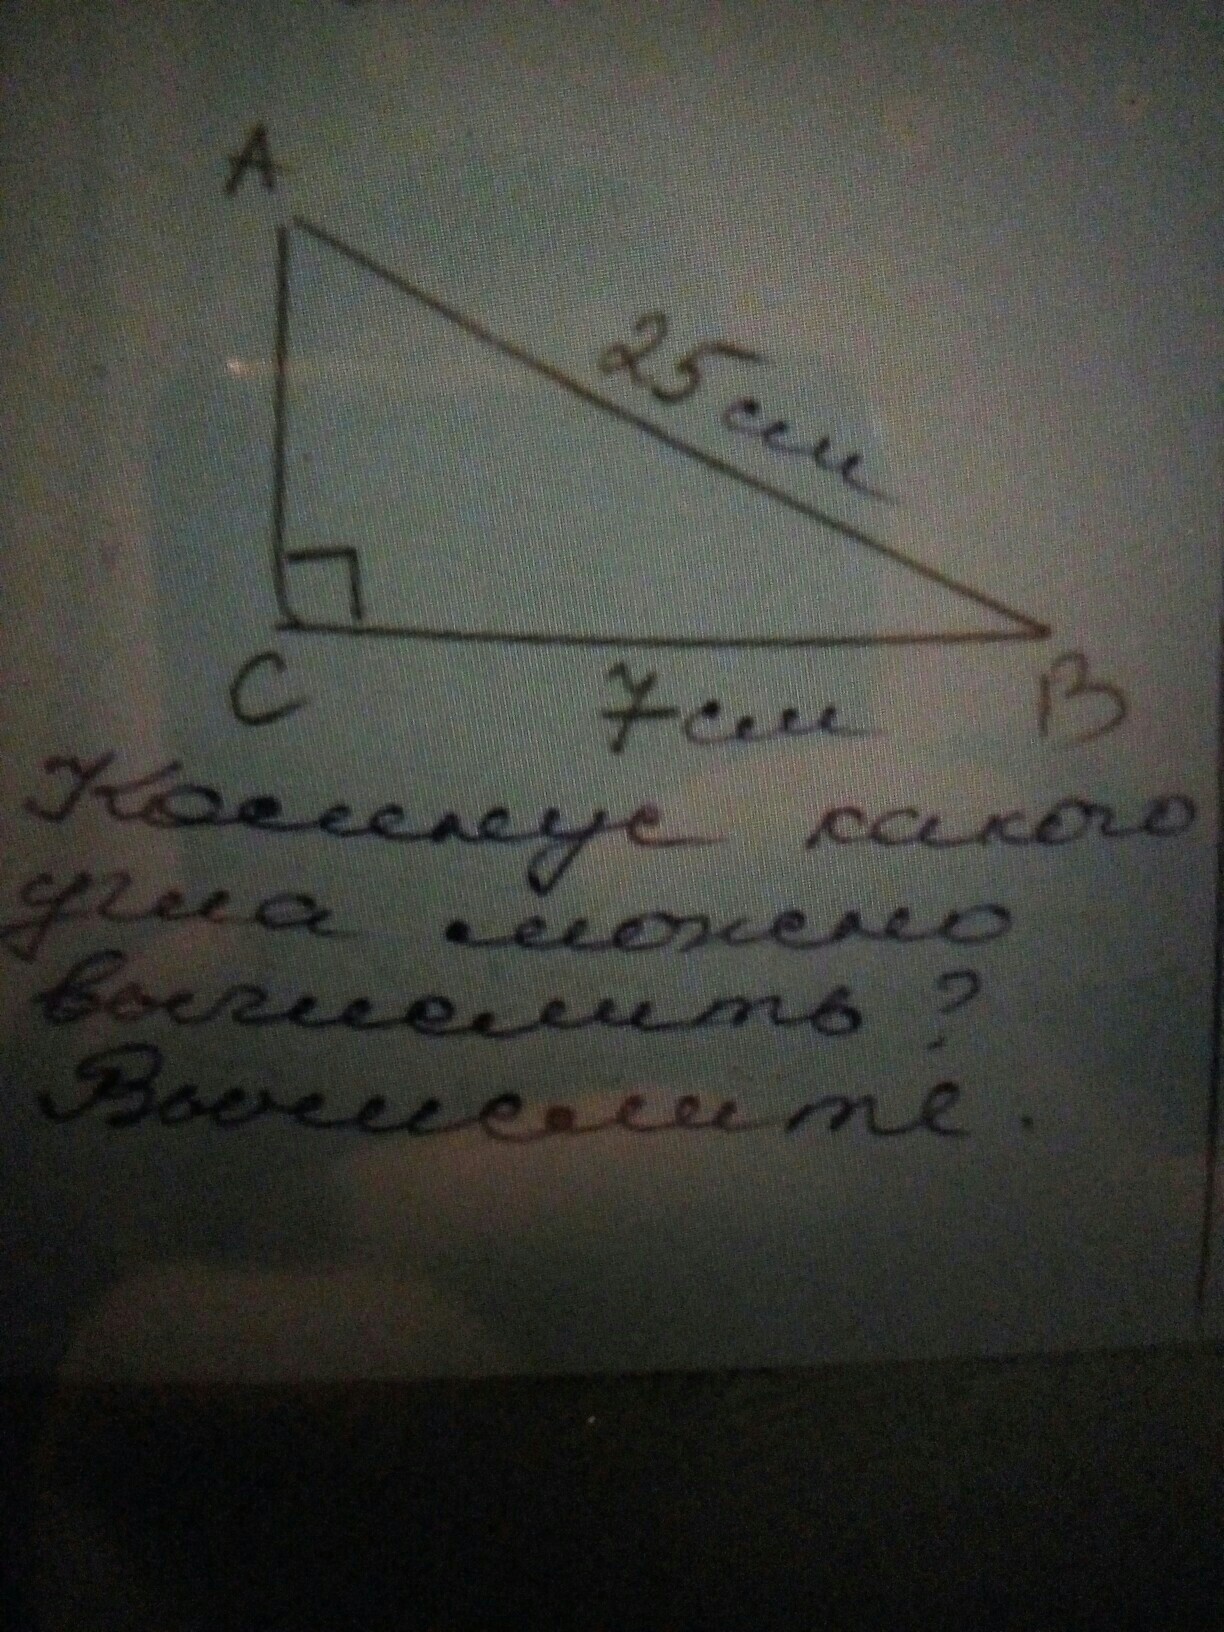 A
25 см
C
7 см
B
Косинус какого
угла можно
вычислить?
Вычислите.